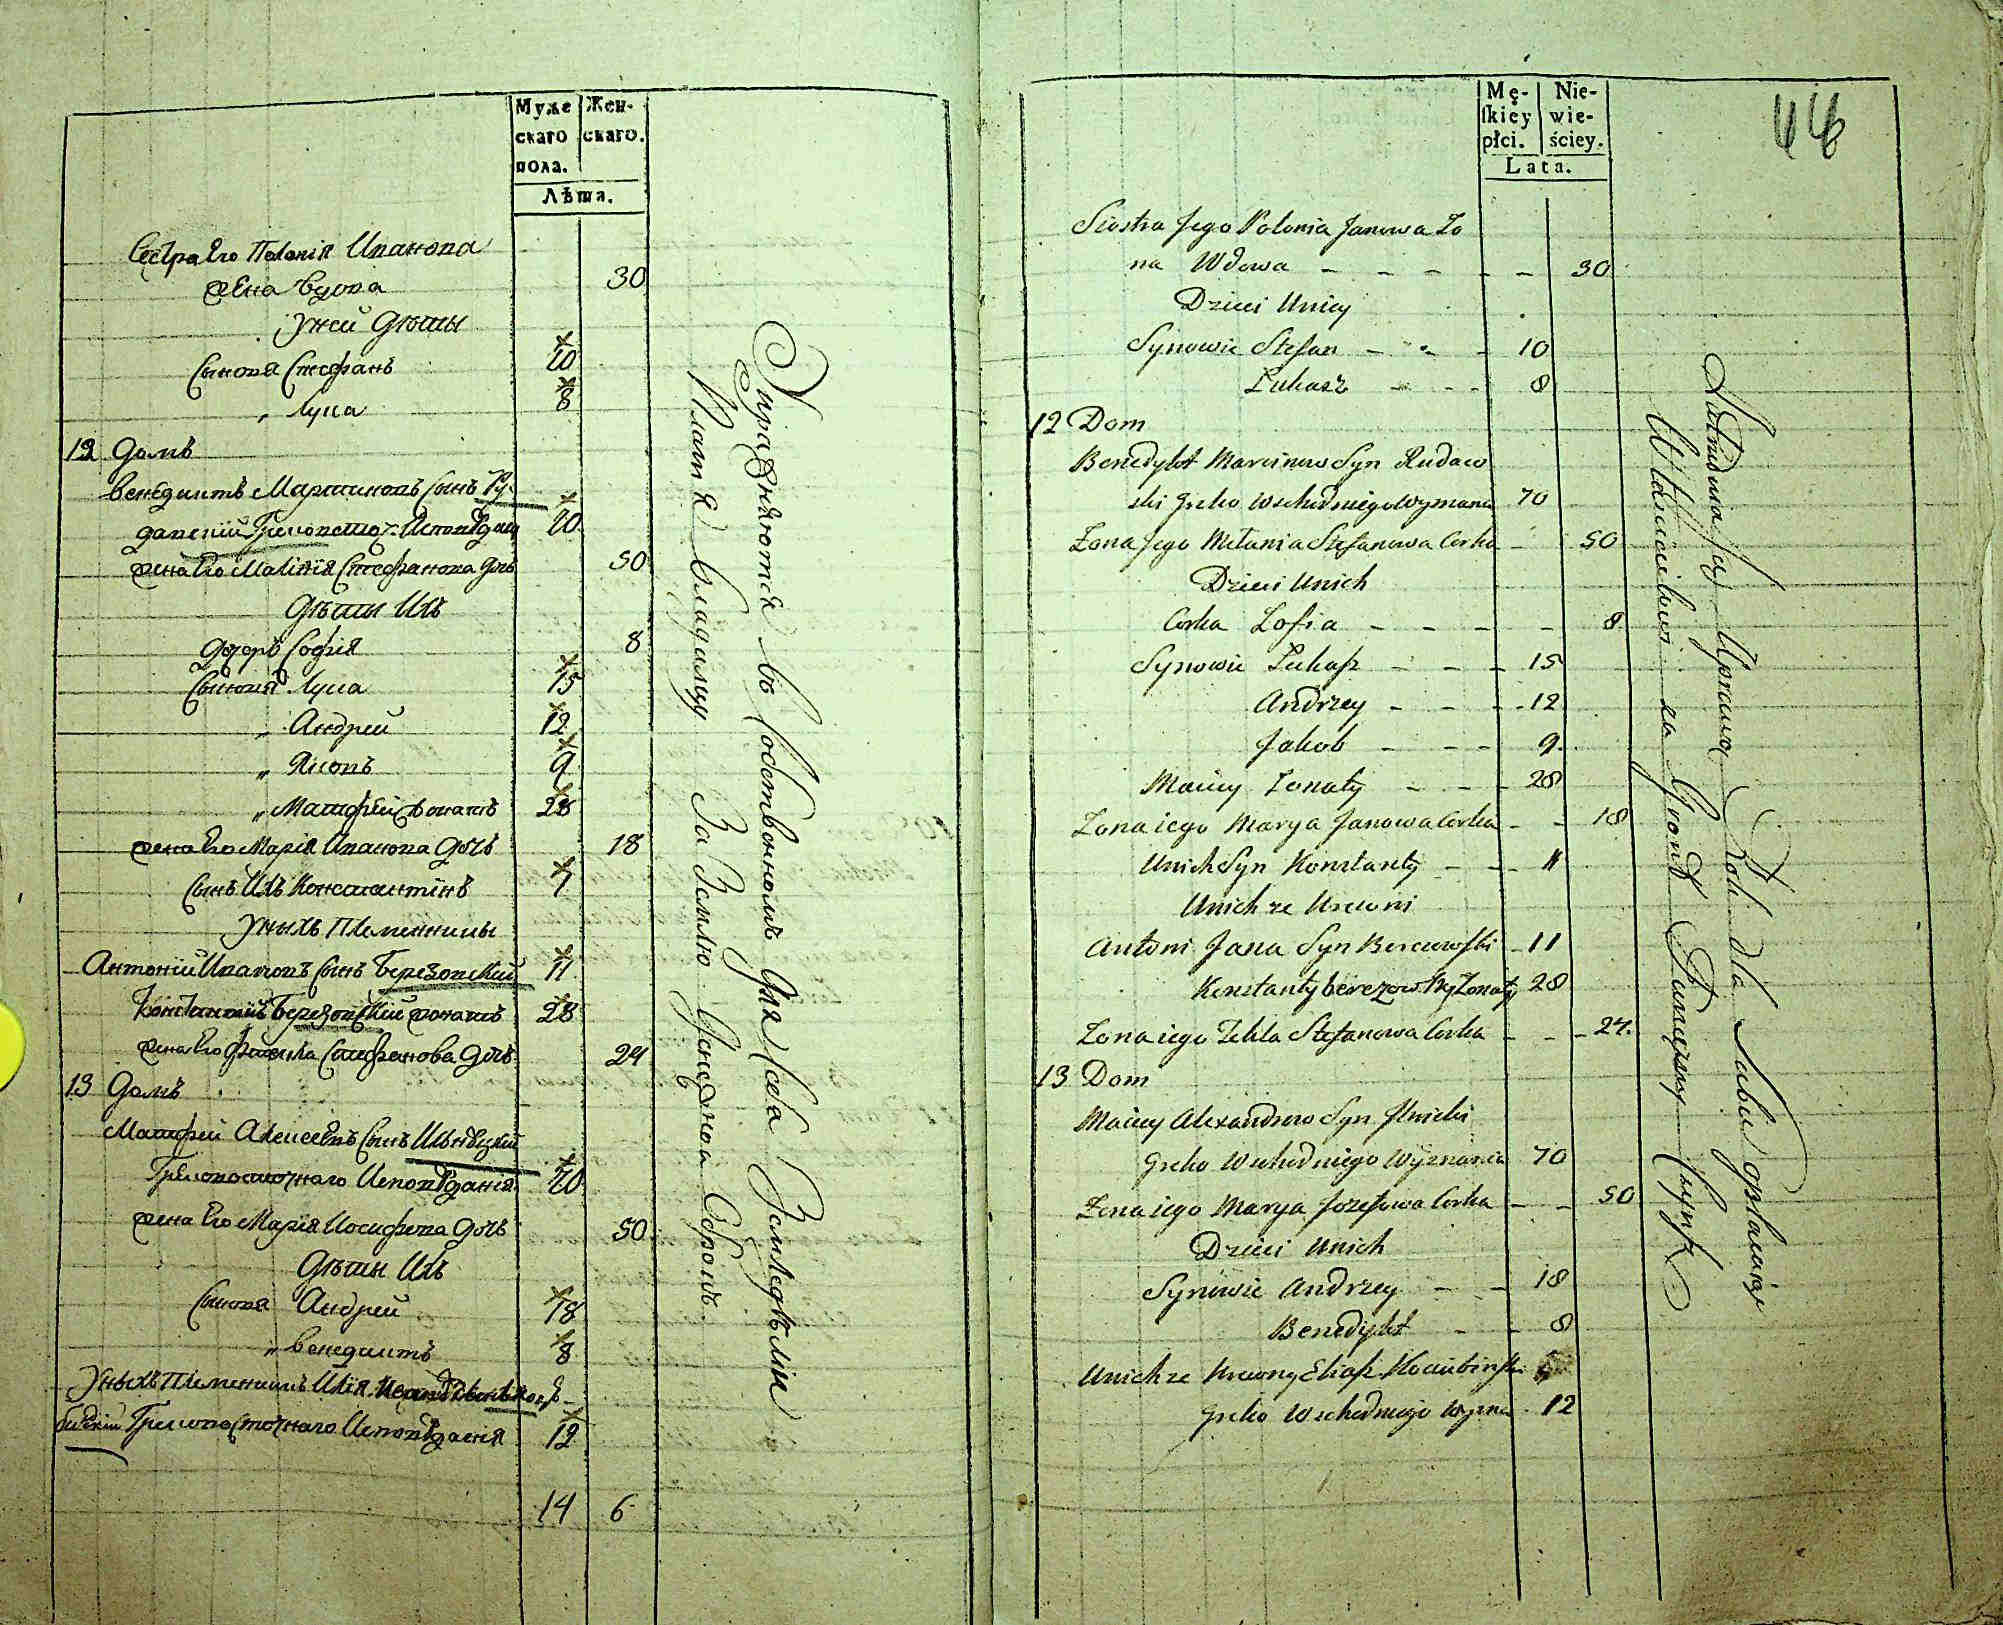 Муже
скаго
пола.
Жен-
скаго.
Лѣта.
Сестра Его Полонія Иванова
жена вдова 30
у ней Дѣти
Сыновья Стефанъ 10
„ Лука 8
12 Домъ
Бенедиктъ Мартиновъ Сынъ Ру-
давский Грековосточ: Исповѣдан 70
жена Его Маланія Стефанова Дочь 50
Дѣти Ихъ
дочерь Софія 8
Сыновья Лука 15
„ Андрей 12
„ Яковъ 9
„ Матфей женатъ 28
жена Его Марія Иванова Дочь 18
Сынъ Ихъ Константинъ 1
у ныхъ Племенники
Антоній Ивановъ Сынъ Березовский 11
Константий Березовский женатъ 28
жена Его Фекла Стефанова Дочь 24
13 Домъ
Матфей Алексеевъ Сынъ Ильницкий
Грековосточнаго Исповѣданія 70
жена Его Марія Иосифова Дочь 50
Дѣти Ихъ
Сыновя Андрей 18
„ Бенедиктъ 8
у ныхъ Племенникъ Илія
Грековосточнаго Исповѣдания 12
14 6
Упражняются въ собственномъ для себя Земледѣліи
Платя Владельцу За Землю Денежной Оброкъ.
44
Mę-
skiey
płci.
Nie-
wie-
ściey.
Lata.
Siostra Jego Polonia Janowa Żo
na Wdowa - - - - - 30
Dzieci Uniey
Synowie Stefan - - - 10
Łukasz - - - 8
12 Dom
Benedykt Marcinow Syn Rudaw
ski Greko Wschodniego Wyznania 70
Żona Jego Melania Stefanowa Corka 50
Dzieci Unich
Corka Zofia - - - - - 8
Synowie Łukasz - - - 15
Andrzey - - - 12
Jakob - - - 9
Maciey Żonaty - - - 28
Żona iego Marya Janowa Corka - - 18
Unich Syn Konstanty - - - 1
Unich ze Krewni
Antoni Jana Syn Berezowski - 11
Konstanty berezowsky Żonaty 28
Żona iego Tekla Stefanowa Corka - - - 24.
13 Dom
Maciey Alexandrow Syn Ilnicki
Greko Wschodniego Wyznania 70
Żona iego Marya Jozefowa Corka - - 50
Dzieci Unich
Synowie Andrzey - - 18
Benedykt - - 8
Unich ze Krewny Eliasz Kociubinski
Greko Wschodniego Wyzna. 12
Zatrudnia się Uprawą Roli dla Siebie opłacaiąc
Właścicielowi za Grunt Pieniężny Czynsz